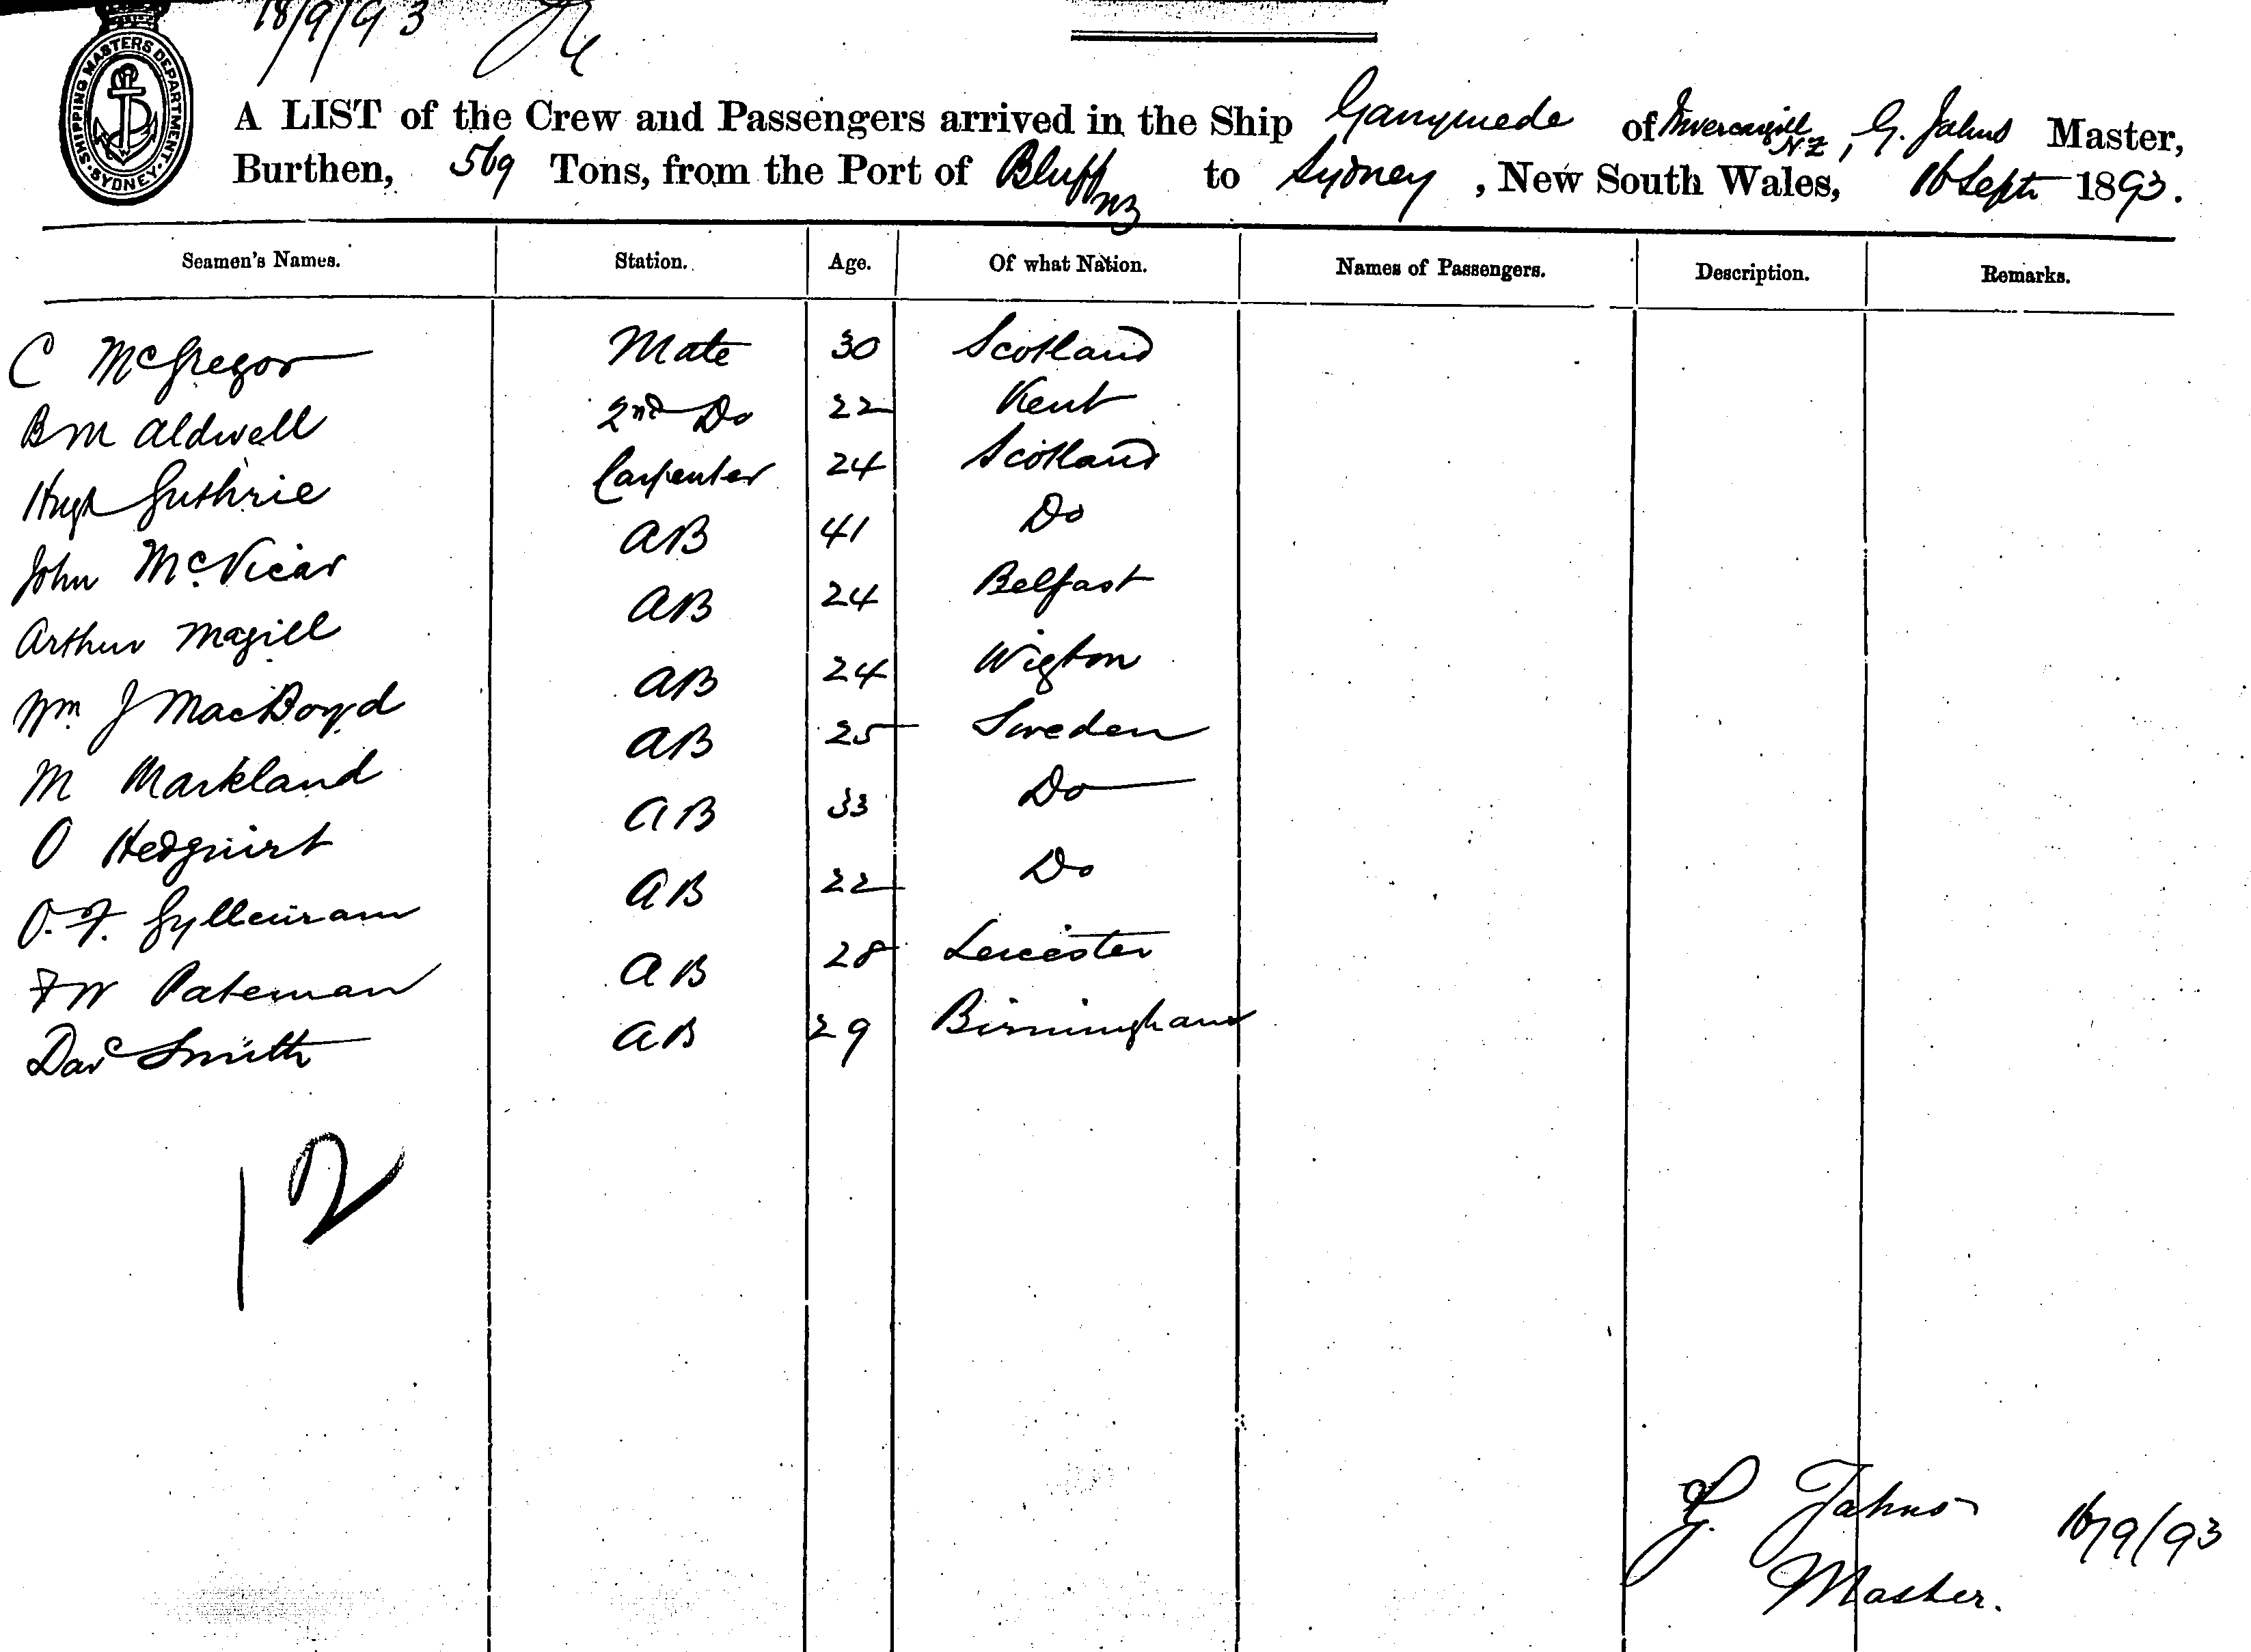 18/9/93
SHIPPING MASTERS DEPARTMENT · SYDNEY ·
A LIST of the Crew and Passengers arrived in the Ship Ganymede of Invercargill NZ, G. Jahns Master,
Burthen, 569 Tons, from the Port of Bluff NZ to Sydney, New South Wales, 16 Sept 1893.
Seamen's Names. Station. Age. Of what Nation. Names of Passengers. Description. Remarks.
C McGregor Mate 30 Scotland
B M Aldwell 2nd Do 22 Kent
Hugh Guthrie Carpenter 24 Scotland
John McVicar AB 41 Do
Arthur Magill AB 24 Belfast
Wm J MacBoyd AB 24 Wigton
M Markland AB 25 Sweden
O Hedquist AB 33 Do
O. F. AB 22 Do
F W Pateman AB 28 Leicester
Davd Smith AB 29 Birmingham
12
G. Jahns 16/9/93
Master.